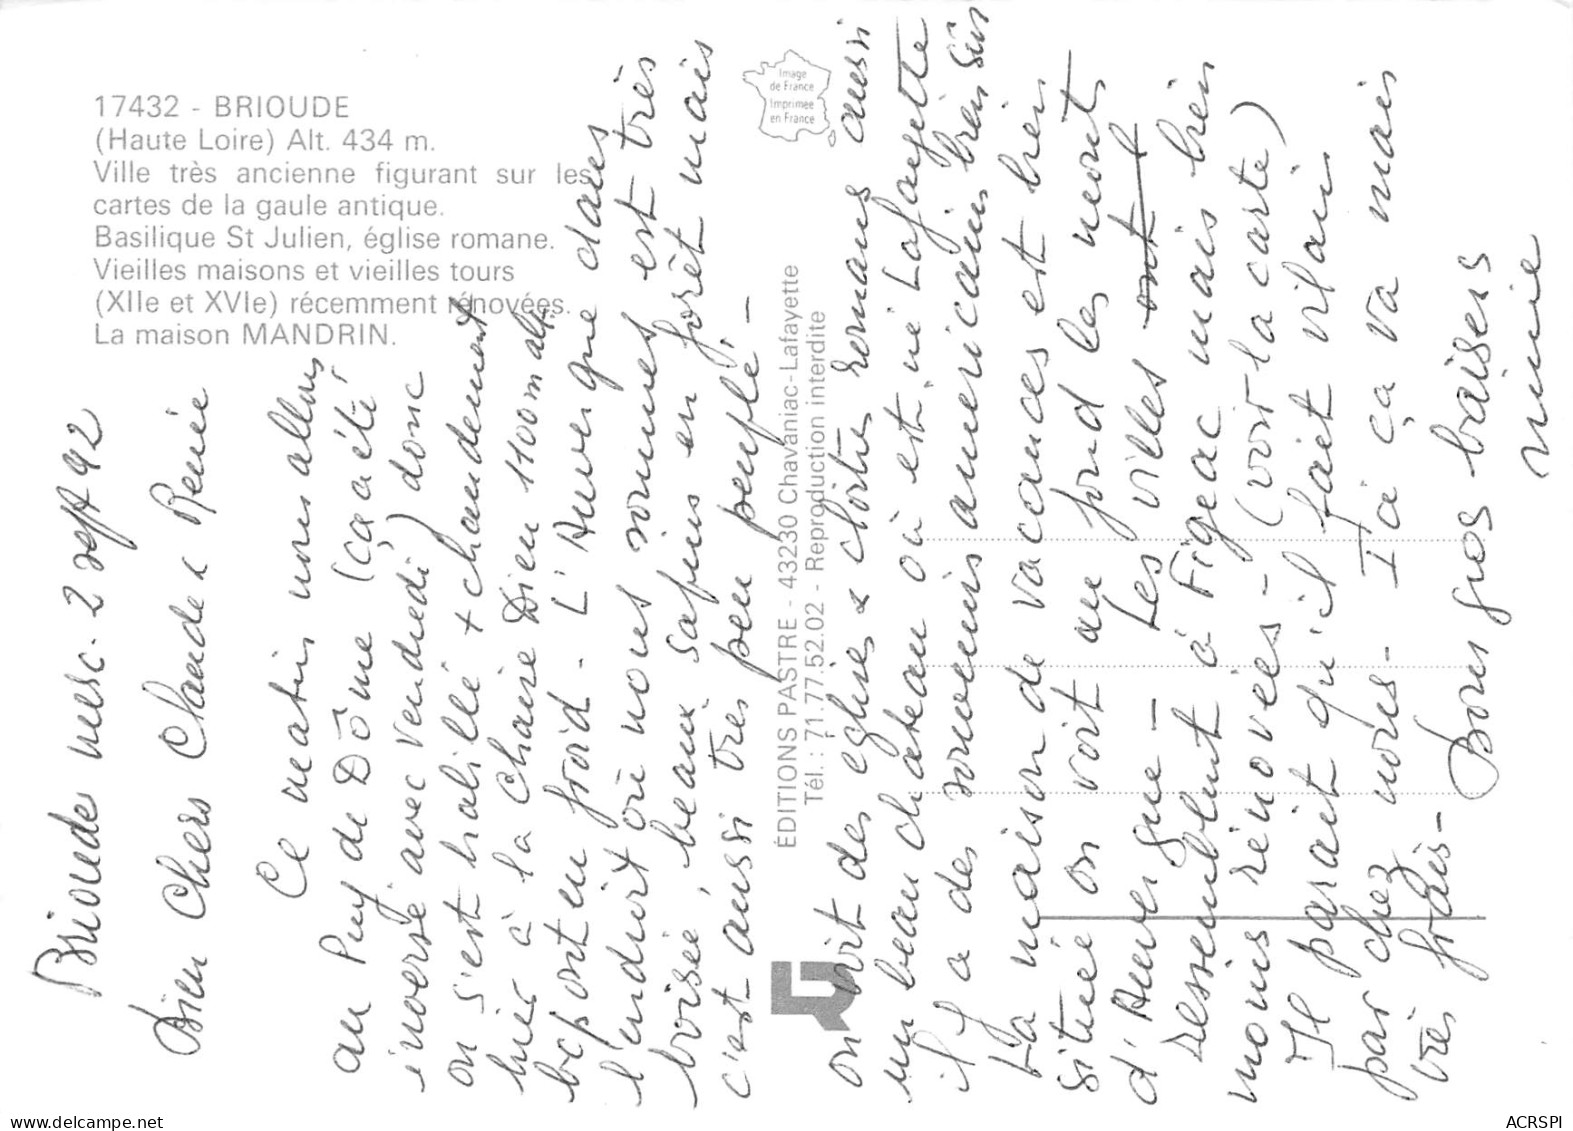 17432 - BRIOUDE
(Haute Loire) Alt. 434 m.
Ville très ancienne figurant sur les
cartes de la gaule antique.
Basilique St Julien, église romane.
Vieilles maisons et vieilles tours
(XIIe et XVIe) récemment rénovées.
La maison MANDRIN.
Image
de France
Imprimée
en France
ÉDITIONS PASTRE - 43230 Chavaniac-Lafayette
Tél. : 71.77.52.02 - Reproduction interdite
Brioude merc. 2 sept 92
Bien chers Claude & Renée
Ce matin nous allons
au Puy de Dôme (ça a été
inversé avec vendredi) donc
on s'est habillé + chaudement
hier à la Chaise Dieu 1100m alt.
bcp ont eu froid - L'Auvergne dans
l'endroit où nous sommes est très
boisée, beaux sapins en forêt mais
c'est aussi très peu peuplé, -
on voit des églises & cloîtres romans aussi
un beau château où est né Lafayette
il y a des souvenirs américains bien sûr
La maison de vacances est bien
située on voit au fond les monts
d'Auvergne - Les villes ont l
ressemblent à Figeac mais bien
moins rénovées - (voir la carte)
Il parait qu'il fait vilain
par chez nous - Ici ça va mais
très frais - Bons gros baisers
mimie
www.delcampe.net
ACRSPI